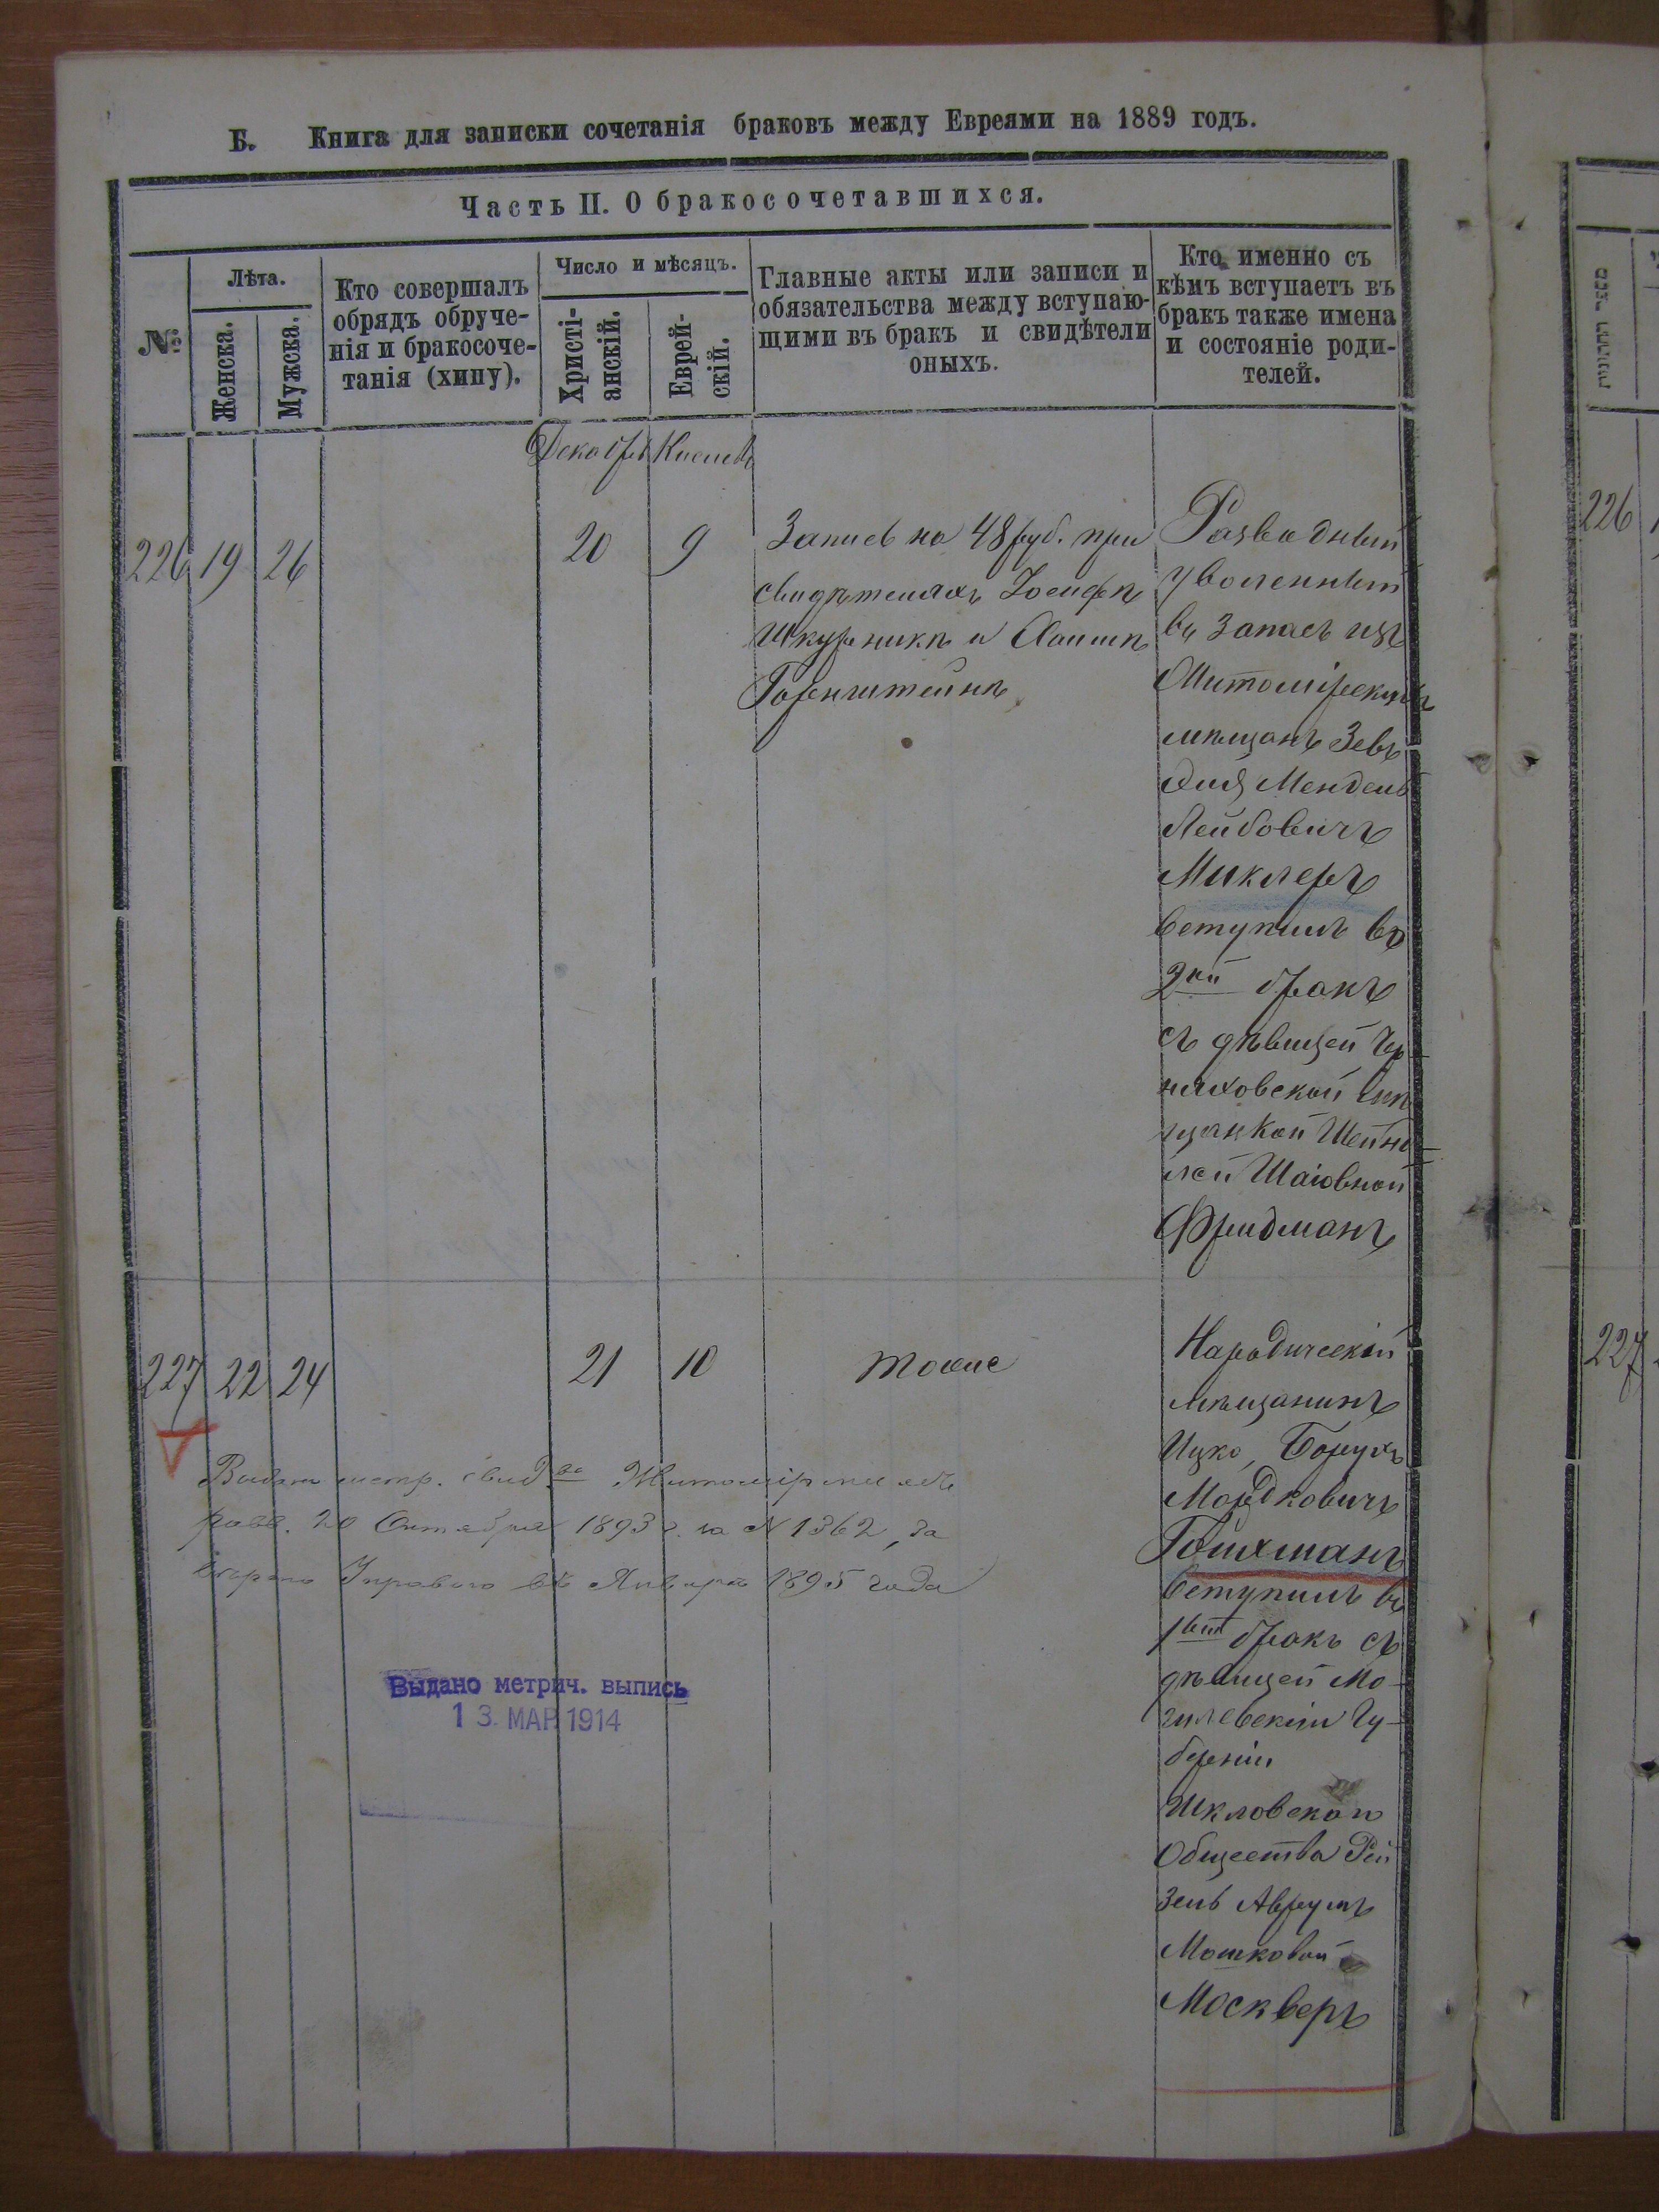 Б. Книга для записки сочетанія браковъ между Евреями на 1889 годъ.
Часть II. О бракосочетавшихся.
№
Лѣта.
Женска.
Мужска.
Кто совершалъ
обрядъ обруче-
нія и бракосоче-
танія (хипу).
Число и мѣсяцъ.
Христі-
анскій.
Еврей-
скій.
Главные акты или записи и
обязательства между вступаю-
щими въ бракъ и свидѣтели
оныхъ.
Кто именно съ
кѣмъ вступаетъ въ
бракъ также имена
и состояніе роди-
телей.
Декабрь Кислевъ
226 19 26 20 9
Запись на 48 руб. при
свидѣтеляхъ Іосифѣ
Шкурникѣ и Хаимѣ
Горенштейнѣ
Разводный
уволенный
въ запасъ изъ
Житомірскихъ
мѣщанъ Зевъ
Мендель
Лейбовичъ
Миклеръ
вступилъ во
2ой бракъ
съ дѣвицей Чер-
няховской мѣ
щанкой Шейнд-
лей Шаіовной
Фридманъ
227 22 24 21 10 тоже
Народичскій
мѣщанинъ
Ицко, Борухъ
Мордковичъ
Гойхманъ
вступилъ въ
1вый бракъ съ
дѣвицей Мо-
гилевскій Гу-
берніи
Шкловскаго
Общества Рей
зель Аврумъ
Мошковой
Москверъ
Выдано метр. свид.во
20 Октября 1893 г. за N 1362, за
въ Январѣ 1895 года
Выдано метрич. выпись
13. МАР. 1914
מספר החתונות
226
227